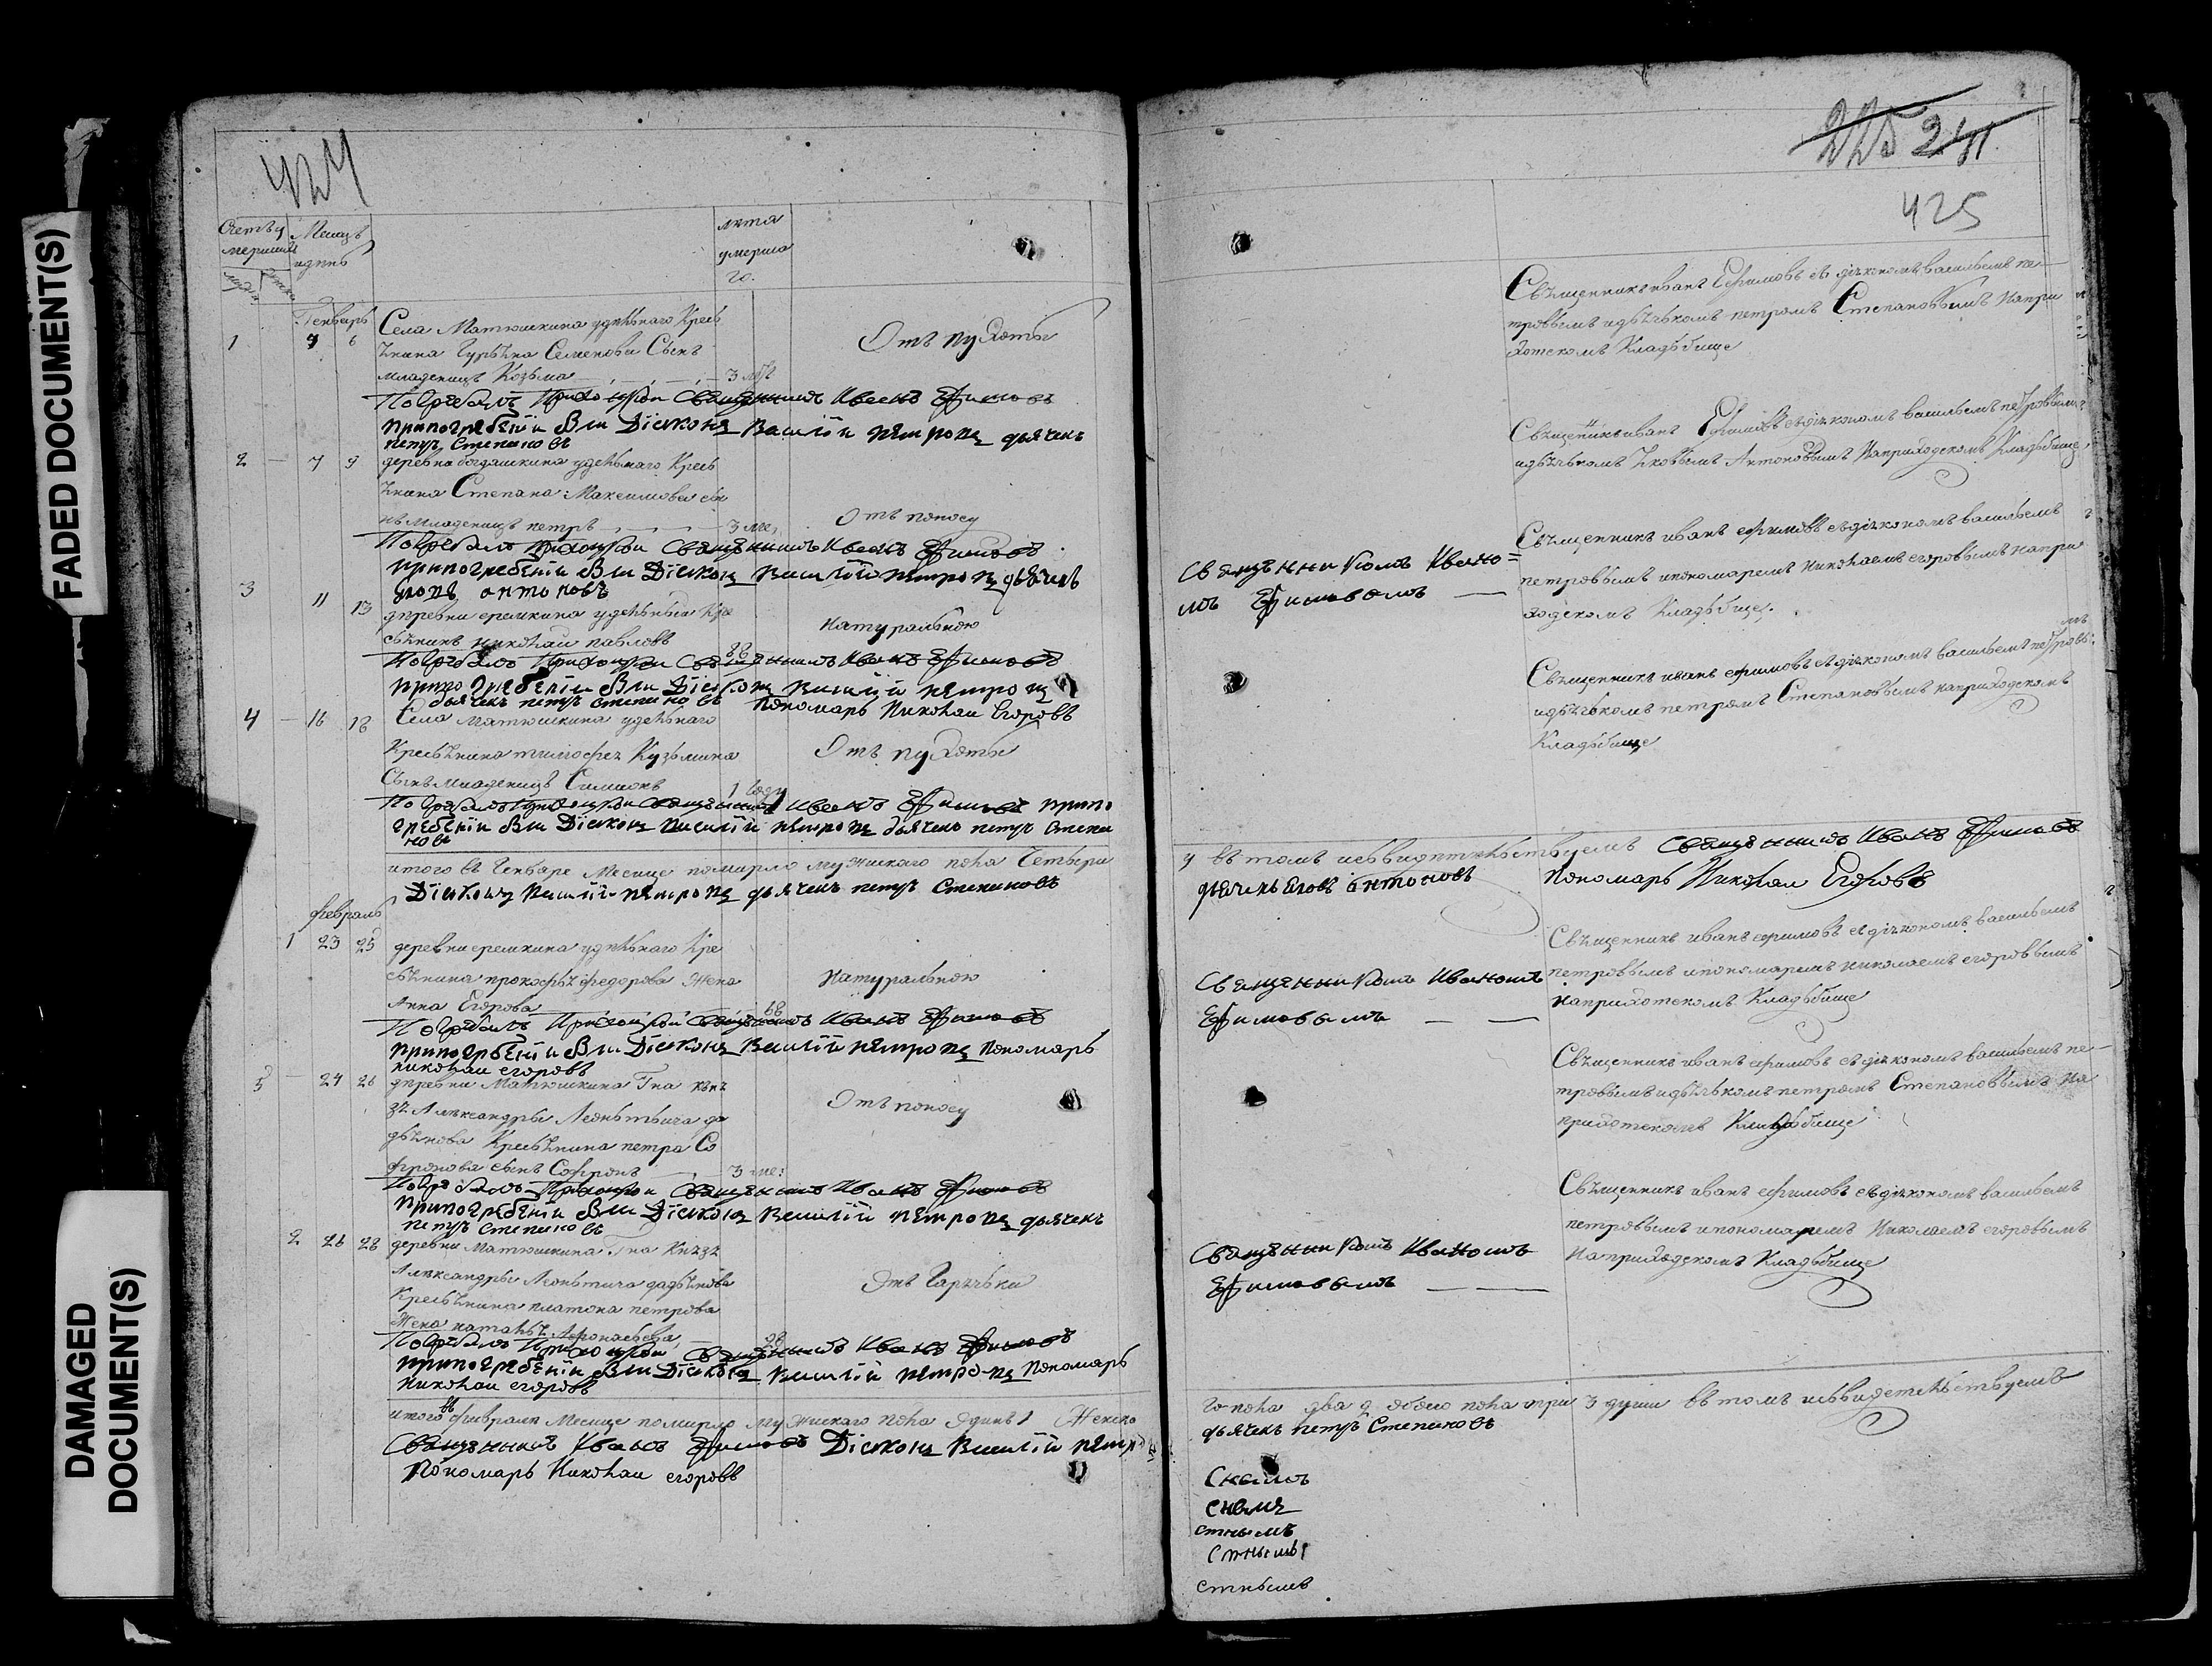 FADED DOCUMENT(S)
DAMAGED
DOCUMENT(S)
424
Счетъ у
мершихъ
Месяцъ
и день
лета
умерша
го.
Генварь
1 4 6 Села Матюшкина удѣльнаго Кресь
янина Гурьяна Семенова Сынъ
младенецъ Козьма 3 Отъ пухоты
Погребалъ Приходской Священникъ Иванъ Ефимовъ
при погребеніи былъ Діаконъ Василій Петровъ дьячекъ
петръ Степановъ
2 7 9 деревни богдашкина удельнаго Кресь
янина Степана Максимова сы
нъ младенецъ петръ 3 ме, Отъ поносу
Погребалъ приходской Священникъ Иванъ Ефимовъ
при погребеніи былъ Діаконъ Василій Петровъ дьячекъ
яковъ антоновъ
3 11 13 деревни еремкина удельный Кре
сьянинъ николай павловъ 88 натуральною
Погребалъ Приходской Священникъ Иванъ Ефимовъ
при погребеніи былъ Діаконъ Василій Петровъ
дьячекъ петръ степановъ Пономарь Николай Егоровъ
4 16 18 Села матюшкина удельнаго
Кресьянина тимофея Кузьмина Отъ пухоты
Сынъ младенецъ Симионъ 1 году
Погребалъ Приходской Священникъ Иванъ Ефимовъ при по
гребеніи былъ Діаконъ Василій Петровъ дьячекъ петръ Степа
новъ
итого въ Генваре Месяце померло мужескаго пола Четыри
Діаконъ Василій Петровъ дьячекъ петръ Степановъ
февраль
1 23 25 деревни еремкина удельнаго Кре
сьянина прокофья федорова Жена натуральною
Анна Егорова 68
Погребалъ Приходской Священникъ Иванъ Ефимовъ
при погребеніи былъ Діаконъ Василій Петровъ Пономарь
николай егоровъ
5 24 26 деревни Матюшкина Гна княз
зя Александры Леонтьича да
дьянова Кресьянина петра Со
фронова сынъ Софронъ 3 ме: Отъ поносу
Погребалъ Приходской Священникъ Иванъ Ефимовъ
При погребеніи былъ Діаконъ Василій Петровъ дьячекъ
петръ степановъ
2 26 28 деревни Матюшкина Гна Князя
Александры Леонтьича дадьянова Отъ Гарячьки
Кресьянина платона петрова
Жена наталья 28
Погребалъ Приходской Священникъ Иванъ Ефимовъ
при погребеніи былъ Діаконъ Василій Петровъ Пономарь
николай егоровъ
итого въ феврале Месяце померло мужескаго пола Одинъ 1 Женско
Священникъ Иванъ Ефимовъ Діаконъ Василій Петровъ
Пономарь Николай егоровъ
225 241
425
Священникъ иванъ Ефимовъ съ діякономъ васильемъ пе
тровымъ и дьячькомъ петромъ Степановымъ на при
хотскомъ Кладьбище
Священникъ иванъ Ефимовъ съ діякономъ васильемъ петровымъ
и дьячькомъ Яковымъ Антоновымъ на приходскомъ Кладьбище
Священникомъ Ивано=
мъ Ефимовымъ
Священникъ иванъ ефимовъ съ діякономъ васильемъ
петровымъ и пономаремъ николаемъ егоровымъ на при
ходскомъ Кладьбище.
Священникъ иванъ ефимовъ съ діякономъ васильемъ петровы
мъ
и дьячькомъ петромъ Степановымъ на приходскомъ
Кладьбище
4 въ томъ и свидетельствуемъ Священникъ Иванъ Ефимовъ
дьячекъ яковъ антоновъ Пономарь Николай Егоровъ
Священникомъ Иваномъ
Ефимовымъ
Священникъ иванъ ефимовъ съ діякономъ васильемъ
петровымъ и пономаремъ николаемъ егоровымъ
на прихотскомъ Кладьбище
Священникъ иванъ ефимовъ съ діякономъ васильемъ пе
тровымъ и дьячькомъ петромъ Степановымъ на
прихотскомъ Кладьбище
Священникомъ Иваномъ
Ефимовымъ
Священникъ иванъ ефимовъ съ діякономъ васильемъ
петровымъ и пономаремъ Николаемъ егоровымъ
на приходскомъ Кладьбище
го пола два 2 обоего пола три 3 души въ томъ и свидетельствуемъ
дьячекъ петръ Степановъ